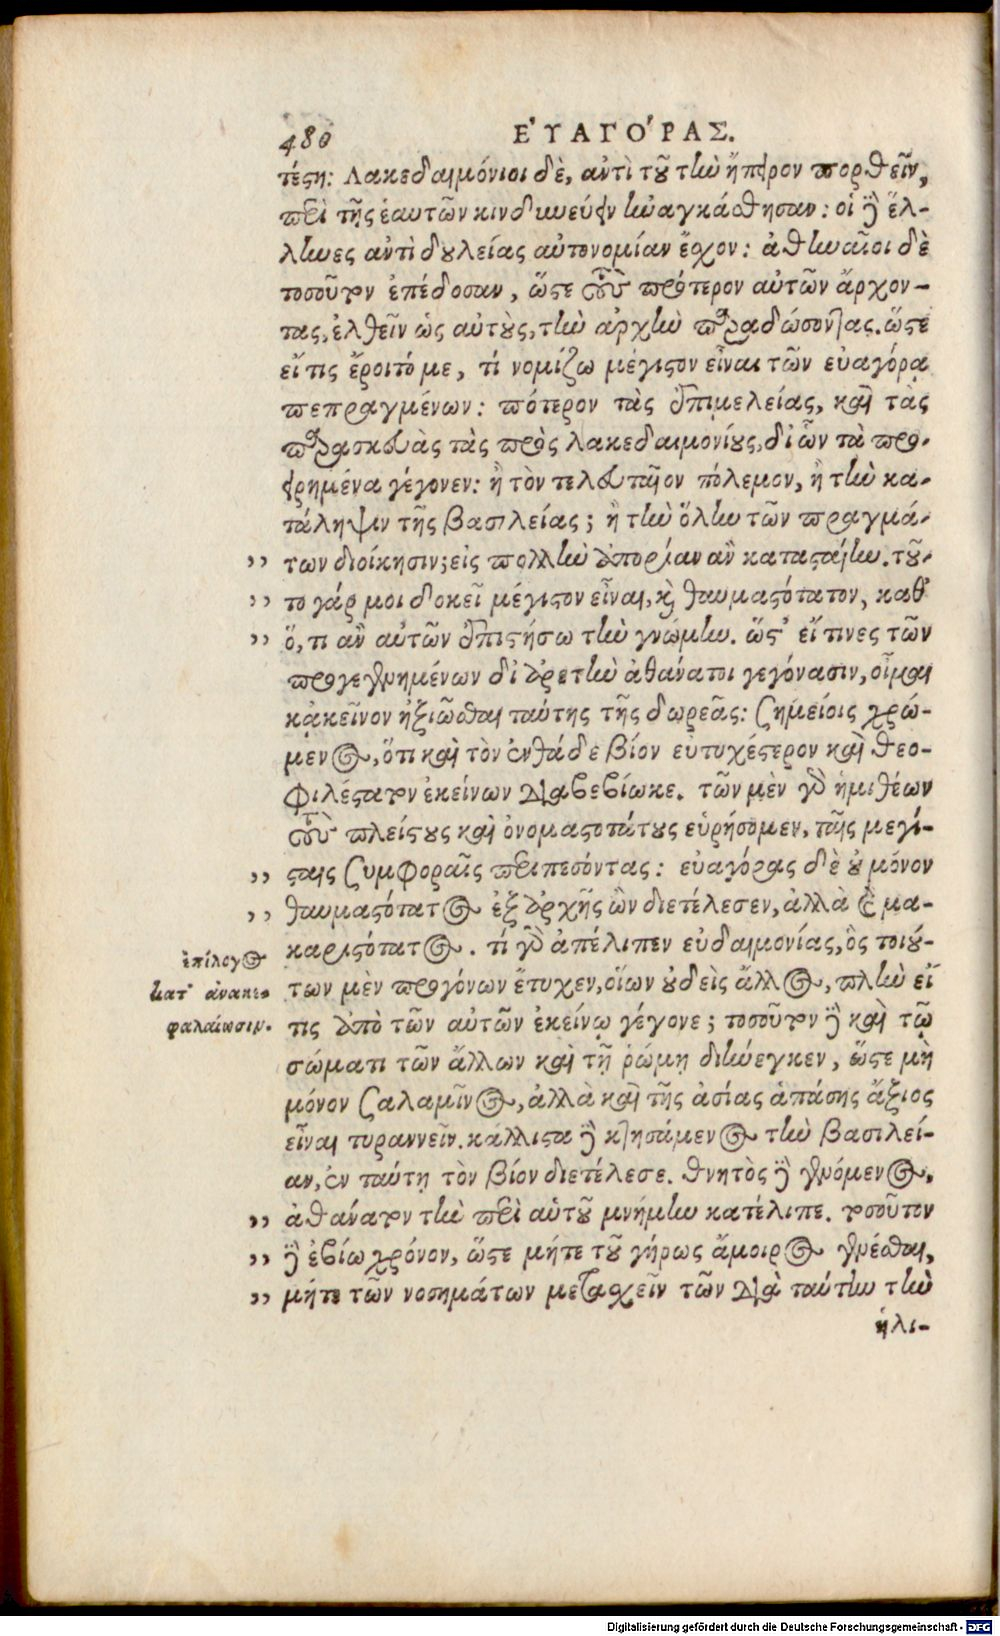 480 ΕὙΑΓΟΡΑΣ.
τέςη: Λακεδαιμόνιοι δὲ, αντὶ τοῦ τὴν ἤπειρον πορθεῖν,
περὶ τῆς ἑαυτῶν κινδυνεύειν ἠναγκάσθησαν: οἱ δὲ ἕλ-
ληνες αντὶ δουλείας αὐτονομίαν ἔχον: ἀθηναῖοι δὲ
τοσοῦτον ἐπέδοσαν, ὥστε τοὺς πρότερον αὐτῶν ἄρχον-
τας, ἐλθεῖν ὡς αὐτοὺς, τὴν ἀρχὴν παραδώσοντας. ὥστε
εἴ τις ἔροιτό με, τί νομίζω μέγιστον εἶναι τῶν εὐαγόρᾳ
πεπραγμένων: πότερον τὰς ἐπιμελείας, καὶ τὰς
παρασκευὰς τὰς πρὸς λακεδαιμονίους, δι' ὧν τὰ προ-
ειρημένα γέγονεν: ἢ τὸν τελευταῖον πόλεμον, ἢ τὴν κα-
τάληψιν τῆς βασιλείας; ἢ τὴν ὅλην τῶν πραγμά-
,, των διοίκησιν; εἰς πολλὴν ἀπορίαν ἂν καταςαίην. τοῦ-
,, το γάρ μοι δοκεῖ μέγιστον εἶναι, καὶ θαυμαστότατον, καθ'
,, ὅ, τι ἂν αὐτῶν ἐπιστήσω τὴν γνώμην. ὥστ' εἴ τινες τῶν
προγεγενημένων δι' ἀρετὴν ἀθάνατοι γεγόνασιν, οἶμαι
κἀκεῖνον ἠξιῶσθαι ταύτης τῆς δωρεᾶς: σημείοις χρώ-
μενος, ὅτι καὶ τὸν ἐνθάδε βίον εὐτυχέστερον καὶ θεο-
φιλέστατον ἐκείνων διαβεβίωκε. τῶν μὲν γὰρ ἡμιθέων
τοὺς πλείστους καὶ ὀνομαστοτάτους εὑρήσομεν, ταῖς μεγί-
,, σταις συμφοραῖς περιπεσόντας: εὐαγόρας δὲ οὐ μόνον
,, θαυμαστότατος ἐξ ἀρχῆς ὢν διετέλεσεν, ἀλλὰ καὶ μα-
καριστότατος. τί γὰρ ἀπέλιπεν εὐδαιμονίας, ὃς τοιού-
των μὲν προγόνων ἔτυχεν, οἵων οὐδεὶς ἄλλος, πλὴν εἴ
τις ἀπὸ τῶν αὐτῶν ἐκείνῳ γέγονε; τοσοῦτον δὲ καὶ τῷ
σώματι τῶν ἄλλων καὶ τῇ ῥώμῃ διήνεγκεν, ὥστε μὴ
μόνον σαλαμῖνος, ἀλλὰ καὶ τῆς ἀσίας ἁπάσης ἄξιος
εἶναι τυραννεῖν. κάλλιστα δὲ κτησάμενος τὴν βασιλεί-
αν, ἐν ταύτῃ τὸν βίον διετέλεσε. θνητὸς δὲ γενόμενος,
,, ἀθάνατον τὴν περὶ αὑτοῦ μνήμην κατέλιπε. τοσοῦτον
,, δὲ ἐβίω χρόνον, ὥστε μήτε τοῦ γήρως ἄμοιρος γενέσθαι,
,, μήτε τῶν νοσημάτων μετασχεῖν τῶν διὰ ταύτην τὴν
ἡλι-
ἐπίλογος
κατ' ἀνακε-
φαλαίωσιν.
Digitalisierung gefördert durch die Deutsche Forschungsgemeinschaft - DFG